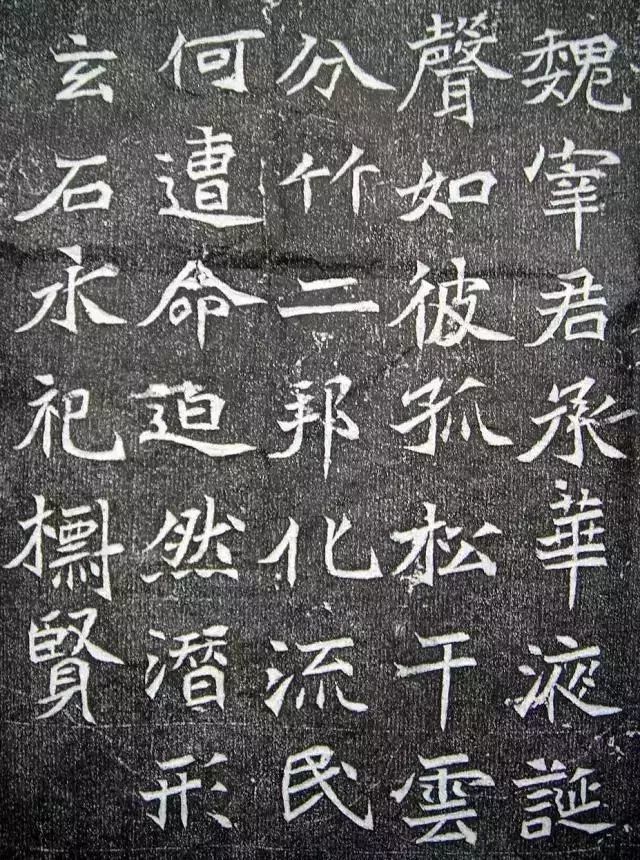 魏宰君承華液誕
聲如彼孤松干雲
分竹二邦化流民
何遭命迫然潛形
玄石永祀檦賢